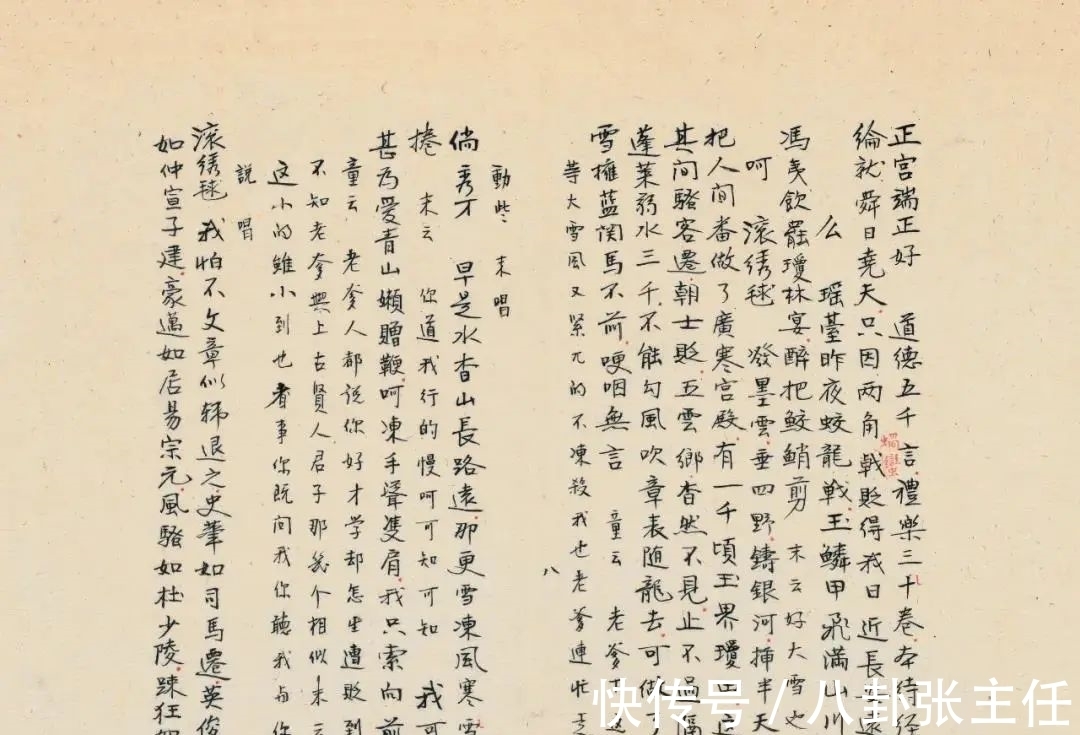 正宮端正好　道德五千言禮樂三千卷本待經
綸就舜日堯天只因两角戰貶得我日近長安遠
蝸蠻
么　瑶臺昨夜蛟龍戰玉鱗甲飛滿山川
馮夷飲罷瓊林宴醉把鮫鮹剪　末云好大雪也
呵　滚綉毬　潑墨雲垂四野鑄銀河揷半天
把人間番做了廣寒宫殿有一千頃玉界瓊田這
其間騷客遷朝士貶五雲鄉杳然不見止不過隔
蓬萊弱水三千不能勾風吹章表随龍去可做了
雪擁蓝関馬不前哽咽無言　童云　老爹
等大雪風又緊兀的不凍殺我也老爹連忙走
八
動些　末唱
倘秀才　早是水杳山長路遠那更雪凍風寒雪
捲　末云　你道我行的慢呵可知可知　我可
甚為愛青山嬾贈鞭呵凍手聳雙肩我只索向前
童云　老爹人都説你好才学却怎生遭貶到
不知老爹與上古賢人君子那幾个相似末云
這小的雖小到也看事你既问我你聽我与你
説　唱
滚綉毬　我怕不文章似韩退之史筆如司馬遷英俊
如仲宣子建豪邁如居易宗元風騷如杜少陵踈狂
快传号/八卦张主任